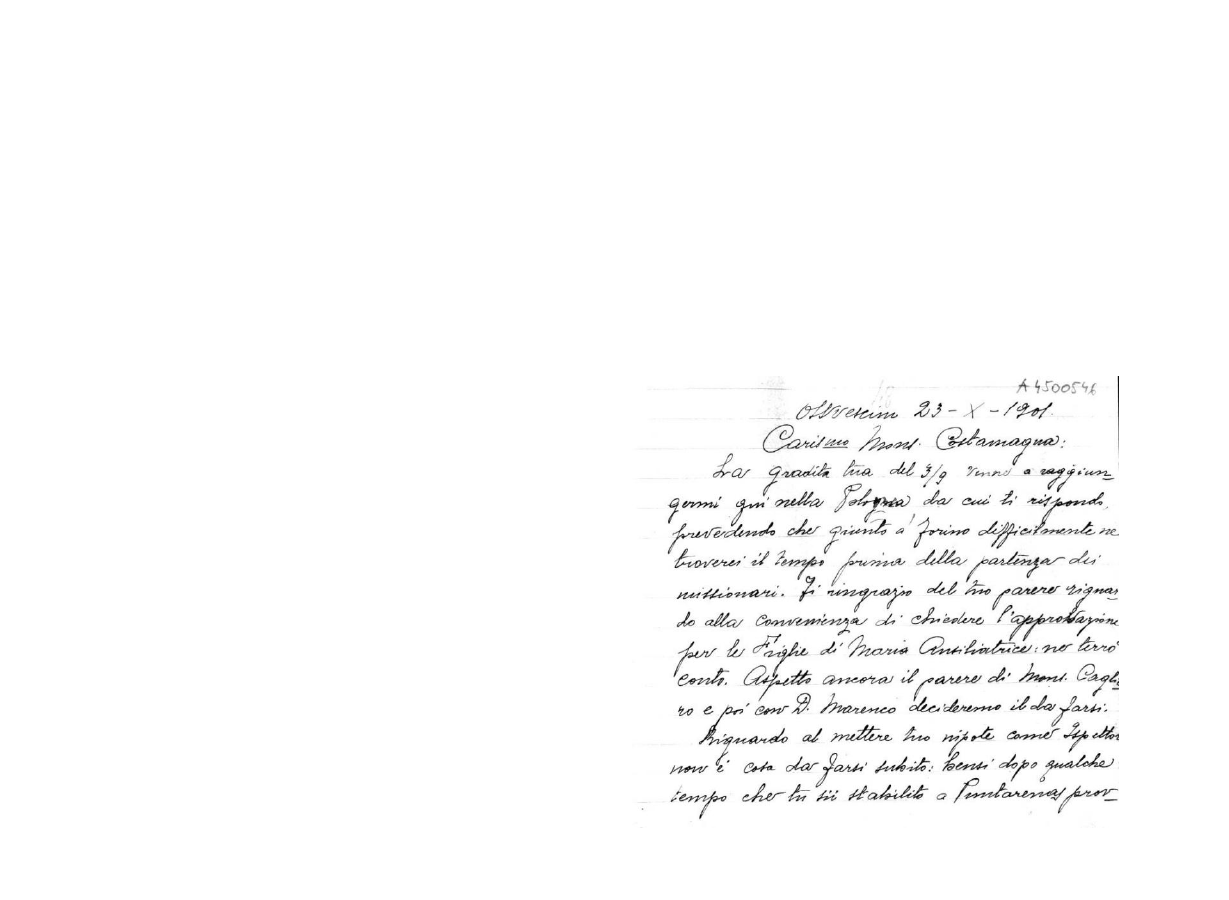 A 4500546
Osswiecim 23 - X - 1901.
Carismo Mons. Costamagna:
La gradita tua del 3/9 venne a raggiun_
germi qui nella Polognia da cui ti rispondo,
prevedendo che giunto a Torino difficilmente ne
troverei il tempo prima della partenza dei
missionari. Ti ringrazio del tuo parere riguar
do alla convenienza di chiedere l'approvazione
per le Figlie di Maria Ausiliatrice: ne terrò
conto. Aspetto ancora il parere di Mons. Caglie
ro e poi con D. Marenco decideremo il da farsi.
Riguardo al mettere tuo nipote come Ispettor
non è cosa da farsi subito: bensì dopo qualche
tempo che tu sii stabilito a Puntarenas prov_